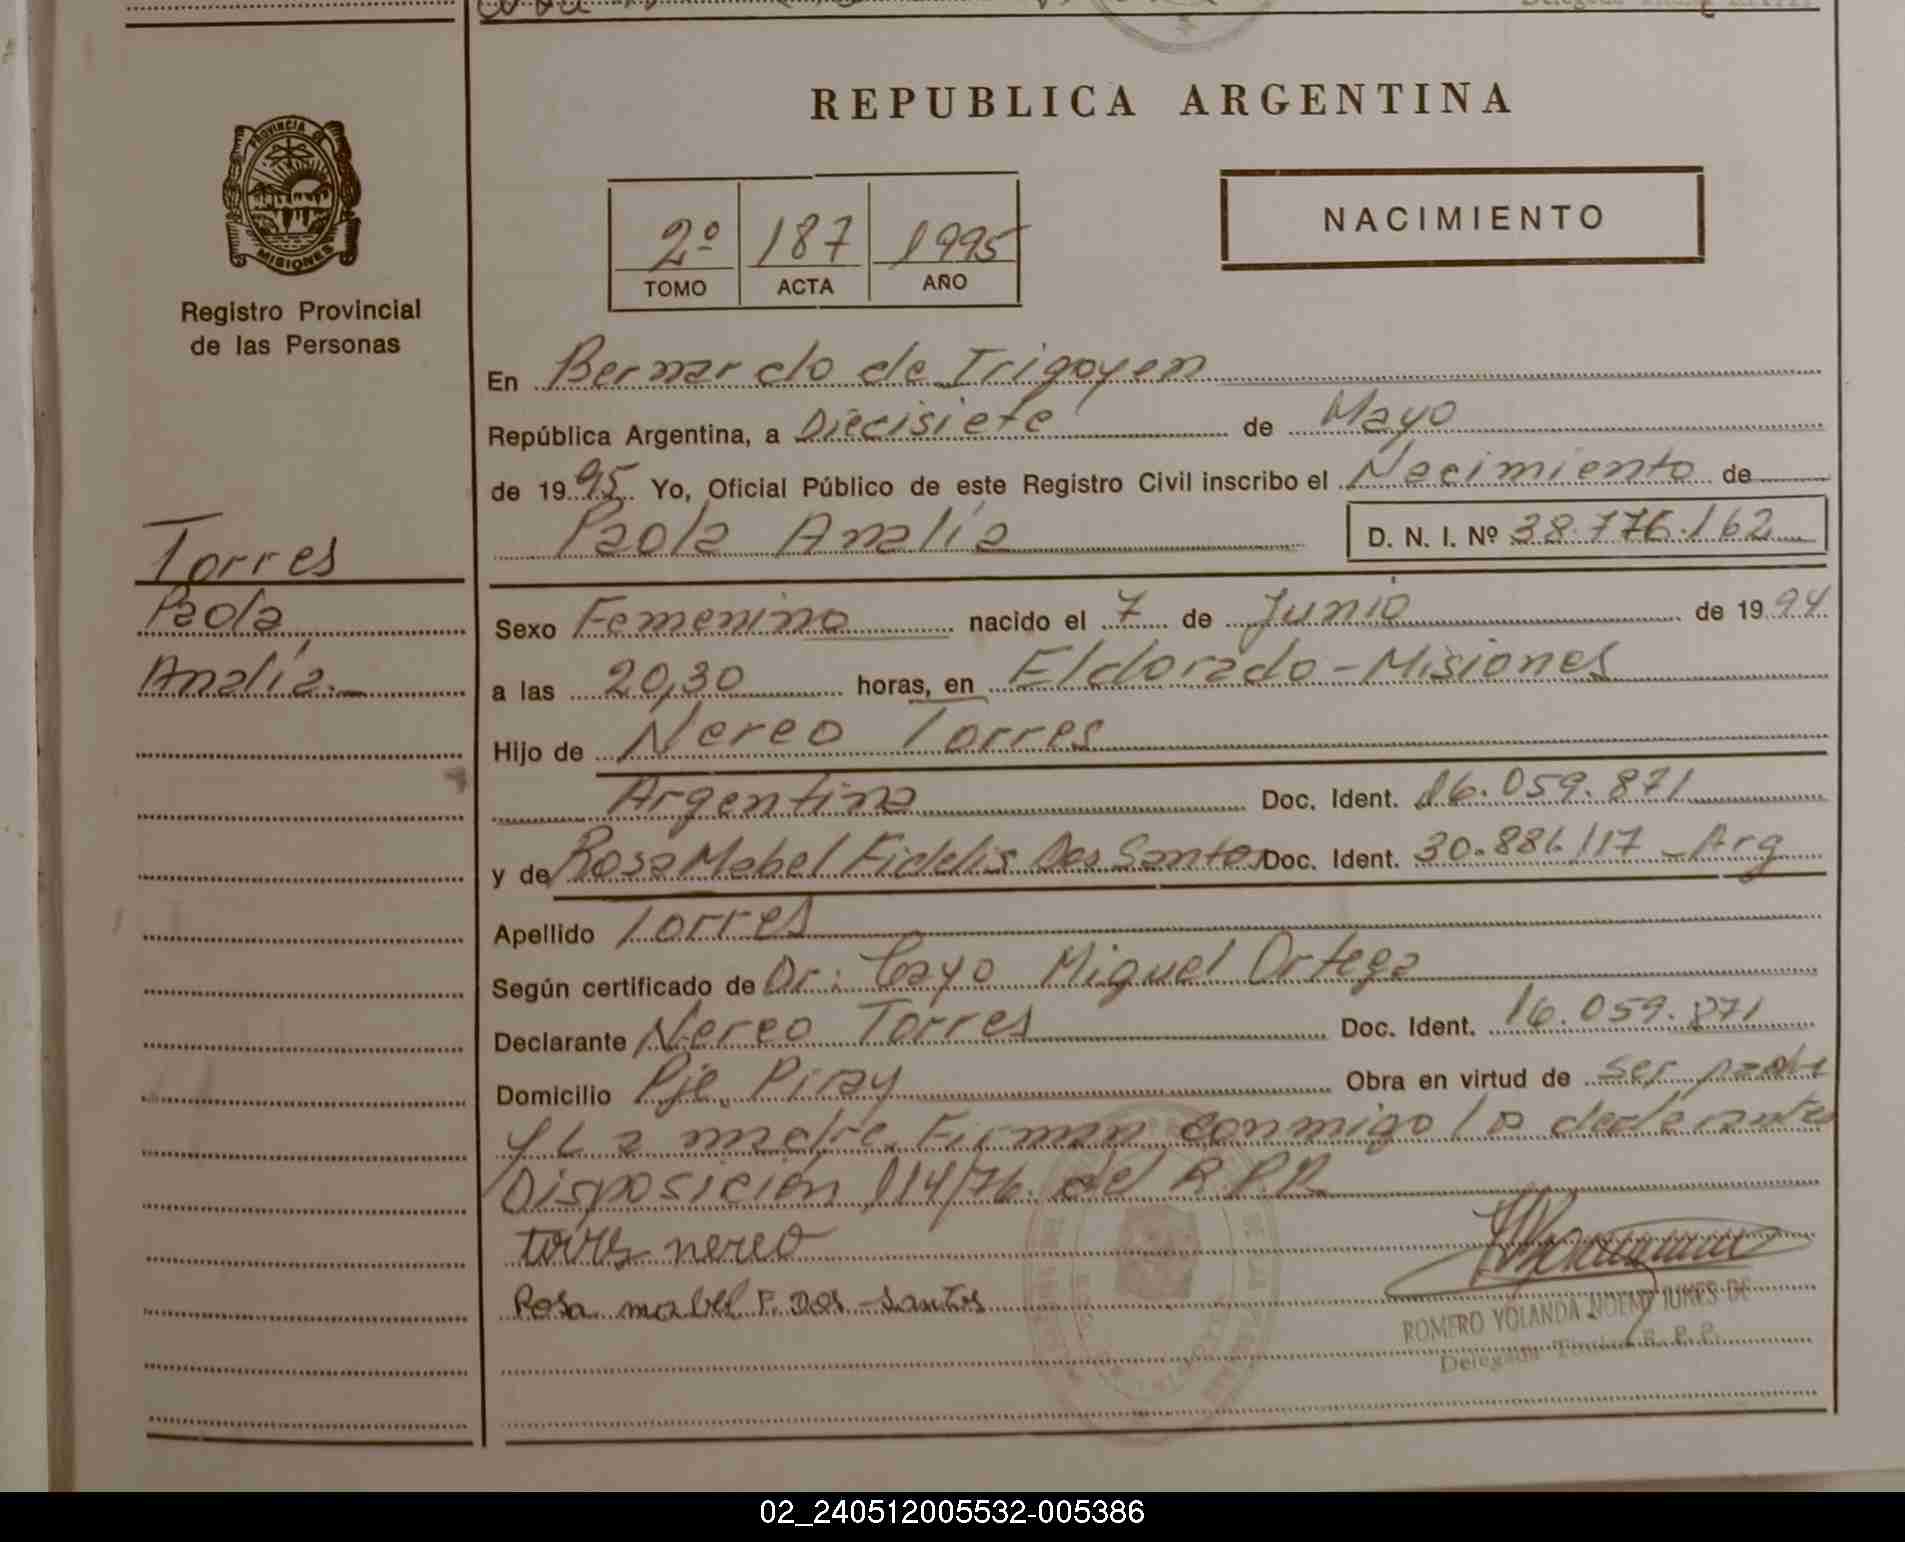 REPUBLICA ARGENTINA
PROVINCIA DE
MISIONES
Registro Provincial
de las Personas
2º 187 1995
TOMO ACTA AÑO
NACIMIENTO
En Bernardo de Irigoyen
República Argentina, a Diecisiete de Mayo
de 1995 Yo, Oficial Público de este Registro Civil inscribo el Nacimiento de
Paola Analía D. N. I. Nº 38.776.162
Torres
Paola
Analía.-
Sexo Femenino nacido el 7 de Junio de 1994
a las 20,30 horas, en Eldorado - Misiones
Hijo de Nereo Torres
Argentina Doc. Ident. 16.059.871
y de Rosa Mabel Fidelis Dos Santos Doc. Ident. 30.886.117 - Arg
Apellido Torres
Según certificado de Dr: Cayo Miguel Ortega
Declarante Nereo Torres Doc. Ident. 16.059.871
Domicilio Pje. Piray Obra en virtud de ser padre
y La madre. Firman conmigo los
Disposición 114/76. del R.P.P.
torres nereo
Rosa mabel F. Dos-Santos
ROMERO YOLANDA NOEMI JUNES DE
Delegada Titular R. P. P.
02_240512005532-005386